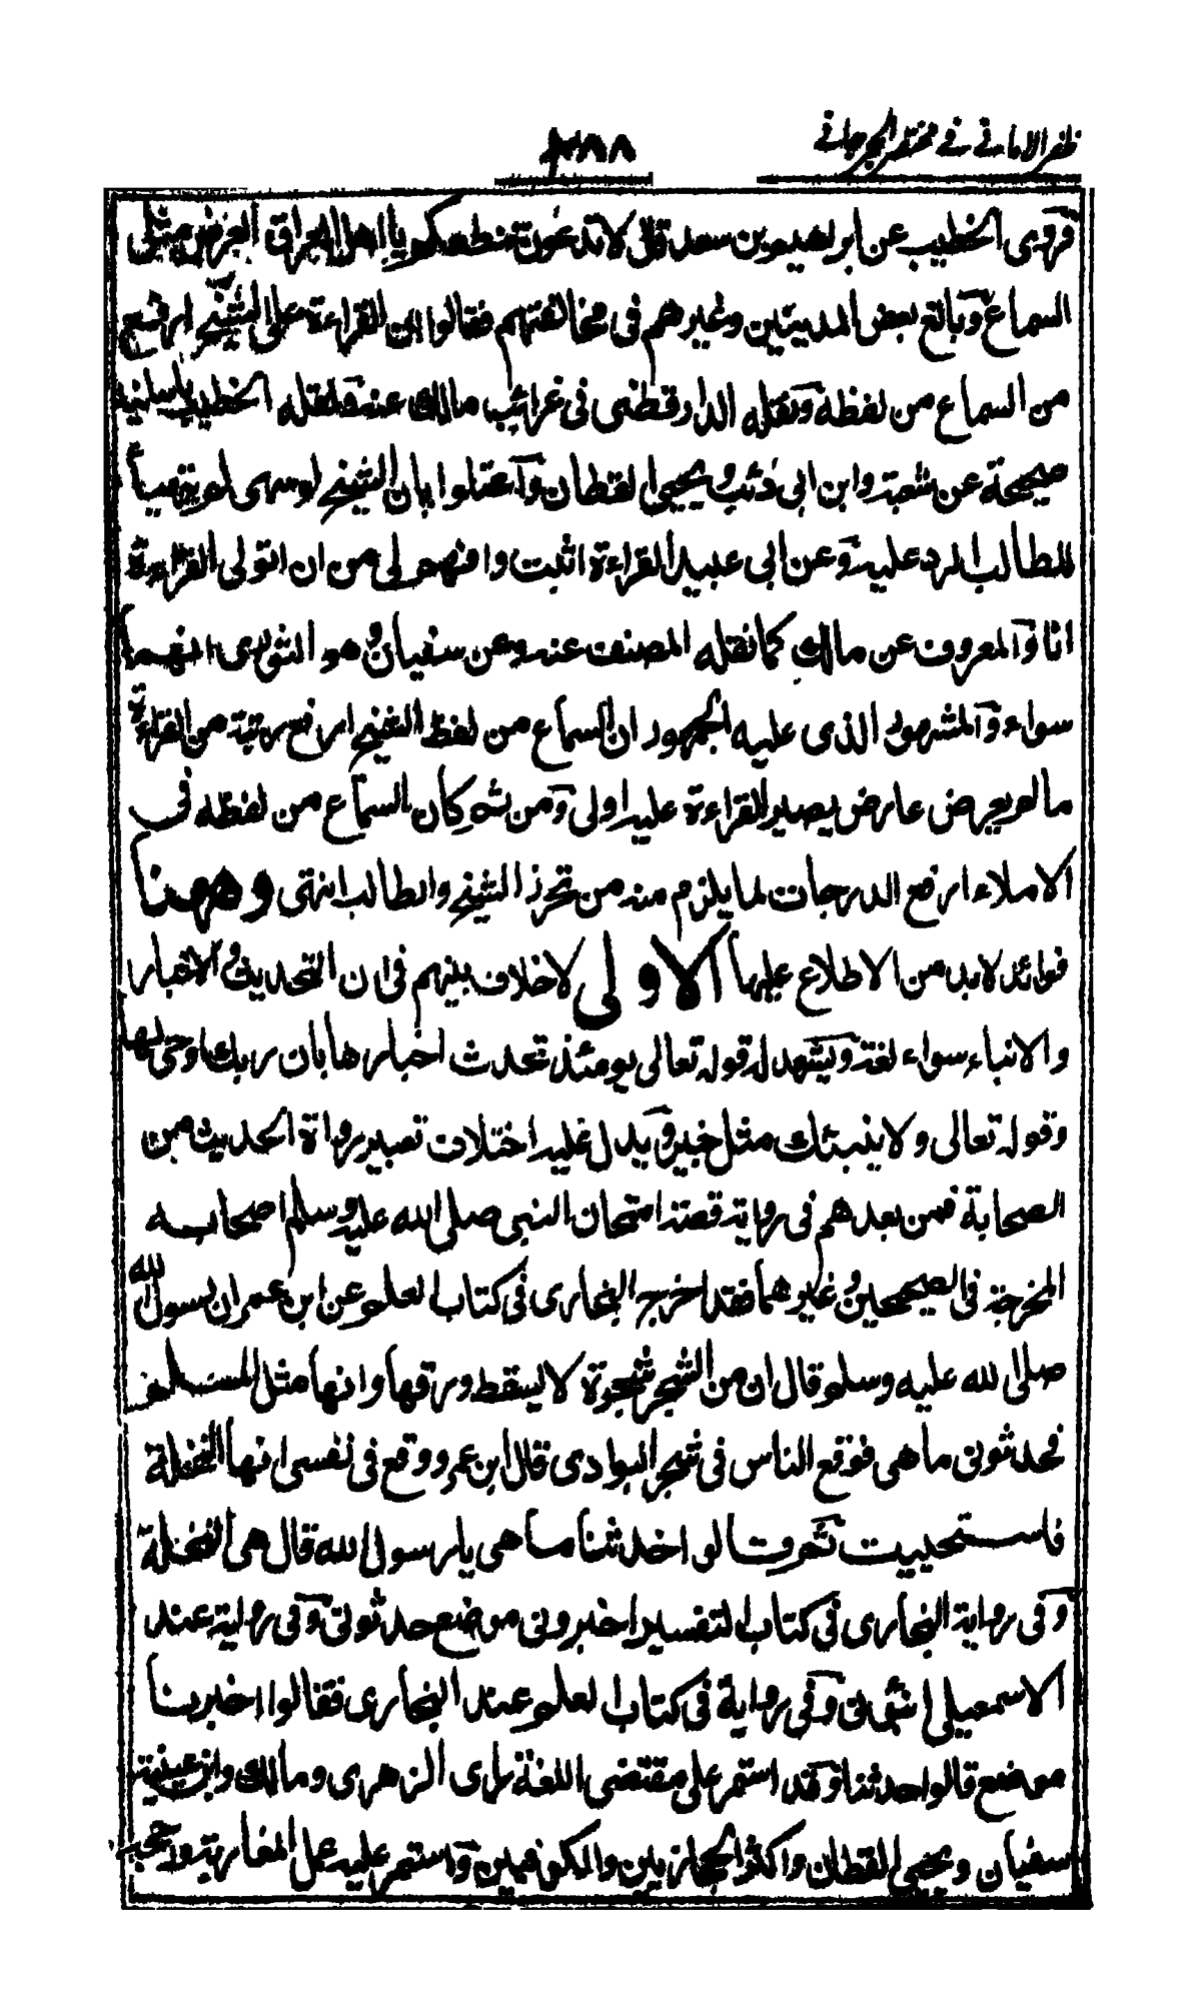 ظفر الامانى فى مختصر الجرجانى
٢٨٨
فروى الخطيب عن ابراهيم بن سعد قال لا تدعون تنطعكم يا اهل العراق العرض مثل
السماع وبالغ بعض المدنيين وغيرهم فى مخالفتهم فقالوا ان القراءة على الشيخ ارفع
من السماع من لفظه ونقله الدارقطنى فى غرائب مالك عنه ونقله الخطيب باسانيد
صحيحة عن شعبة وابن ابى ذئب ويحيى القطان واعتلوا بان الشيخ لو سهى لم يتهيأ
للطالب الرد عليه وعن ابى عبيد القراءة اثبت وافهم لى من ان اتولى القراءة
انا والمعروف عن مالك كما نقله المصنف عنه وعن سفيان وهو الثورى انهما
سواء والمشهور الذى عليه الجمهور ان السماع من لفظ الشيخ ارفع رتبة من القراءة
ما لم يعرض عارض يصير القراءة عليه اولى ومن ثم كان السماع من لفظه فى
الاملاء ارفع الدرجات لما يلزم منه من تحرز الشيخ والطالب انتهى وههنا
فوائد لابد من الاطلاع عليها الاولى لاخلاف بينهم فى ان التحديث والاخبار
والانباء سواء لغة ويشهد له قوله تعالى يومئذ تحدث اخبارها بان ربك اوحى لها
وقوله تعالى ولا ينبئك مثل خبير ويدل عليه اختلاف تعبير رواة الحديث من
الصحابة فمن بعدهم فى رواية قصة امتحان النبى صلى الله عليه وسلم اصحابه
المخرجة فى الصحيحين وغيرهما فقد اخرج البخارى فى كتاب العلم عن ابن عمر ان رسول الله
صلى الله عليه وسلم قال ان من الشجر شجرة لا يسقط ورقها وانها مثل المسلم
فحدثونى ما هى فوقع الناس فى شجر البوادى قال ابن عمر ووقع فى نفسى انها النخلة
فاستحييت ثم قالوا حدثنا ما هى يا رسول الله قال هى النخلة
وفى رواية البخارى فى كتاب التفسير اخبرونى موضع حدثونى وفى رواية عند
الاسمعيلى انبئونى وفى رواية فى كتاب العلم عند البخارى فقالوا اخبرنا
موضع قالوا حدثنا وقد استمر على مقتضى اللغة راى الزهرى ومالك وابن عيينة
سفيان ويحيى القطان واكثر الحجازيين والكوفيين واستمر عليه عمل المغاربة ورجحه